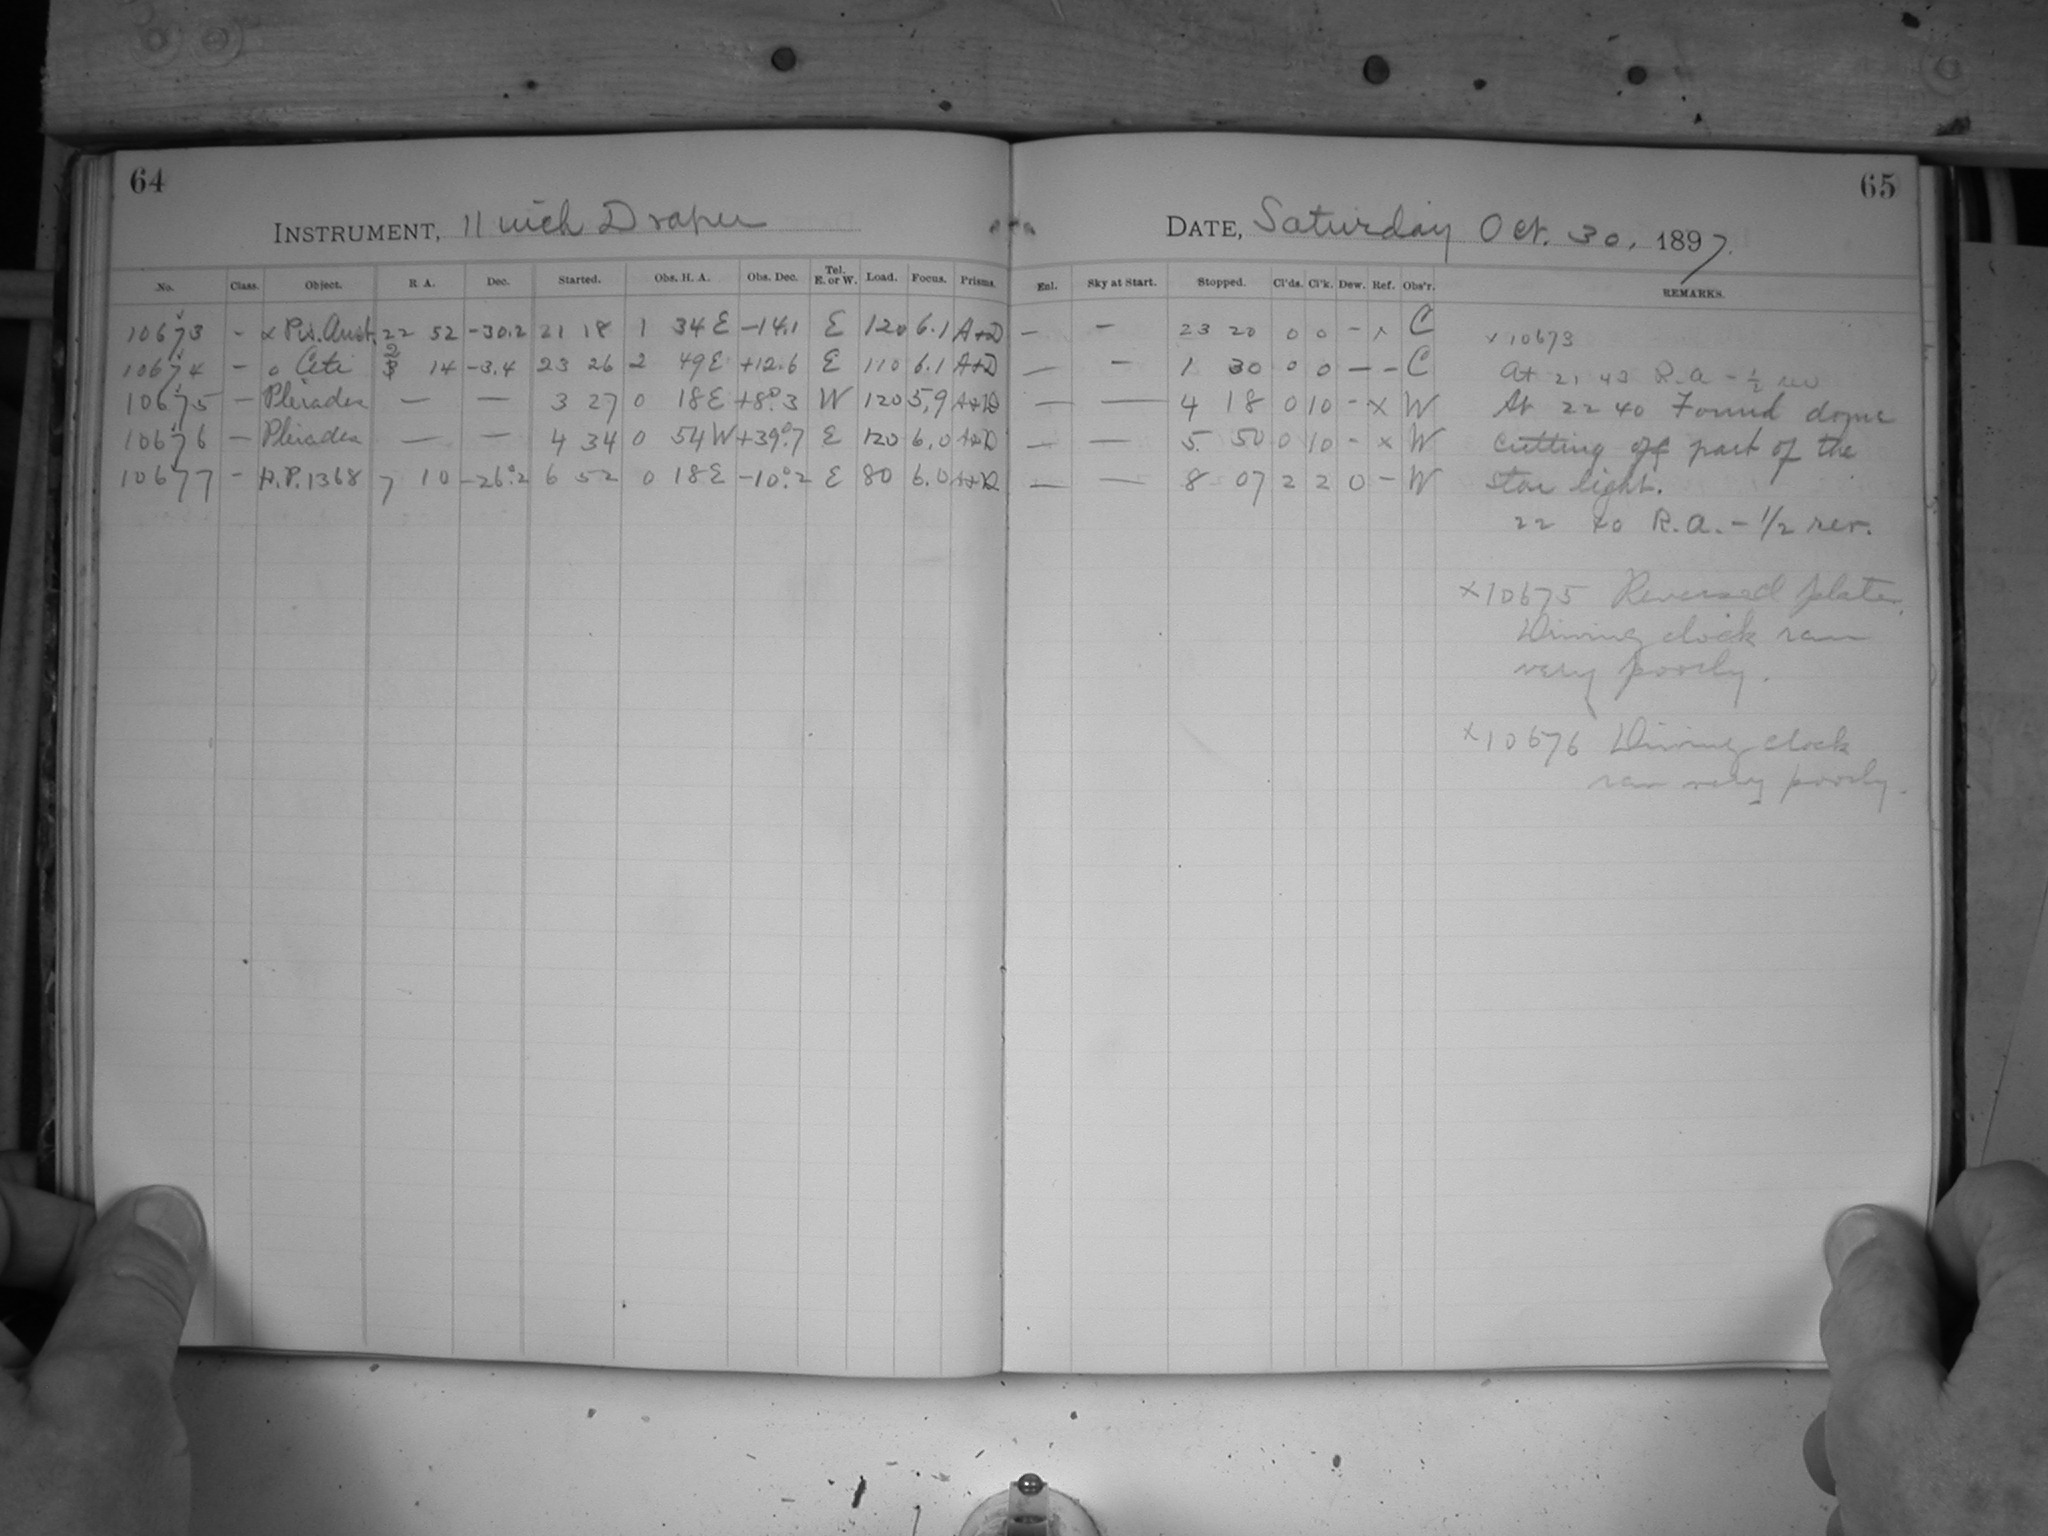 64
INSTRUMENT, 11 inch Draper
No. Class. Object. R A. Dec. Started. Obs. H. A. Obs. Dec. Tel. E. or W. Load. Focus. Prisms.
10673 - α Pis. Aust. 22 52 -30.2 21 18 1 34 E -14.1 E 120 6.1 A+D
10674 - o Ceti 2 14 -3.4 23 26 2 49 E +12.6 E 110 6.1 A+D
10675 - Pleiades — — 3 27 0 18 E +8°.3 W 120 5,9 A+D
10676 - Pleiades — — 4 34 0 54 W +39°.7 E 120 6.0 A+D
10677 - A.P. 1368 7 10 -26°.2 6 52 0 18 E -10°.2 E 80 6.0 A+D
65
DATE, Saturday Oct. 30, 1897.
Enl. Sky at Start. Stopped. Cl'ds. Cl'k. Dew. Ref. Obs'r. REMARKS.
— - 23 20 0 0 - x C x 10673
— - 1 30 0 0 — - C At 21 43 R.a - ½ rev
— — 4 18 0 10 - x W At 22 40 Found dome
— — 5. 50 0 10 - x W cutting off part of the
— — 8 07 2 2 0 - W star light.
22 40 R.a. - 1/2 rev.
x10675 Reversed plate.
Driving clock ran
very poorly.
x10676 Driving clock
ran very poorly.